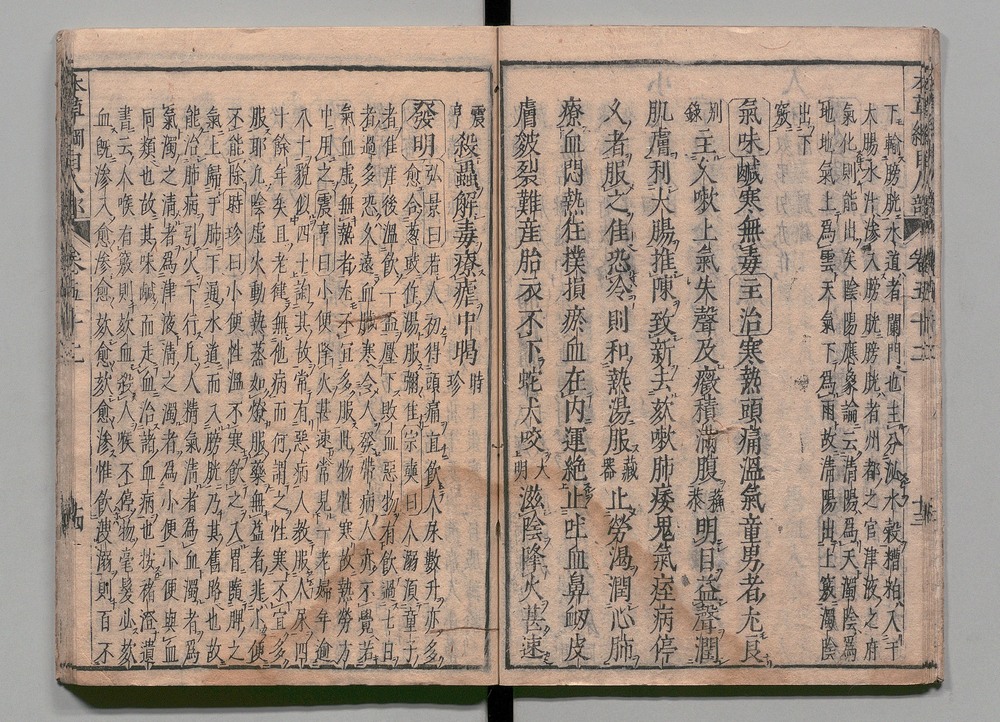 下輸膀胱水道者闌門也主分泌水穀糟粕入于
大腸水汁滲入膀胱膀胱者州都之官津液之府
氣化則能出矣陰陽應象論云清陽爲天濁陰爲
地地氣上爲雲天氣下爲雨故清陽出上竅濁陰
出下
竅
氣味鹹寒無毒主治寒熱頭痛溫氣童男者尤良
別
錄主久嗽上氣失聲及癥積滿腹蘇
恭明目益聲潤
肌膚利大腸推陳致新去欬嗽肺痿鬼氣痓病停
久者服之佳恐冷則和熱湯服藏
器止勞渴潤心肺
療血悶熱狂撲損瘀血在內運絶止吐血鼻衄皮
膚皴裂難產胎衣不下蛇犬咬大
明滋陰降火甚速
震
亨殺蟲解毒療瘧中暍時
珍
發明弘景曰若人初得頭痛直飲人尿數升亦多
者佳愈合葱豉作湯服彌佳宗奭曰人溺須童子
者產後溫飲一盃壓下敗血惡物有飲過七日
者過多恐久遠血臟寒令人發帶病人亦不覺若
氣血虛無熱者尤不宜多服此物性寒故熱勞方
中用之震亨曰小便降火甚速常見一老婦年逾
八十貌似四十詢其故常有惡病人教服人尿四
十餘年矣且老健無他病而何謂之性寒不宜多
服耶凡陰虛火動熱蒸如燎服藥無益者非小便
不能除時珍曰小便性溫不寒飲之入胃隨脾之
氣上歸于肺下通水道而入膀胱乃其舊路也故
能治肺病引火下行凡人精氣清者爲血濁者爲
氣濁之清者爲津液清之濁者爲小便小便與血
同類也故其味鹹而走血治諸血病也按褚澄遺
書云人喉有竅則欬血殺人喉不停物毫髮必欬
血既滲入愈滲愈欬愈欬愈滲惟飲溲溺則百不
本草綱目人部
卷五十二
十三
本草綱目人部
卷五十二
十四